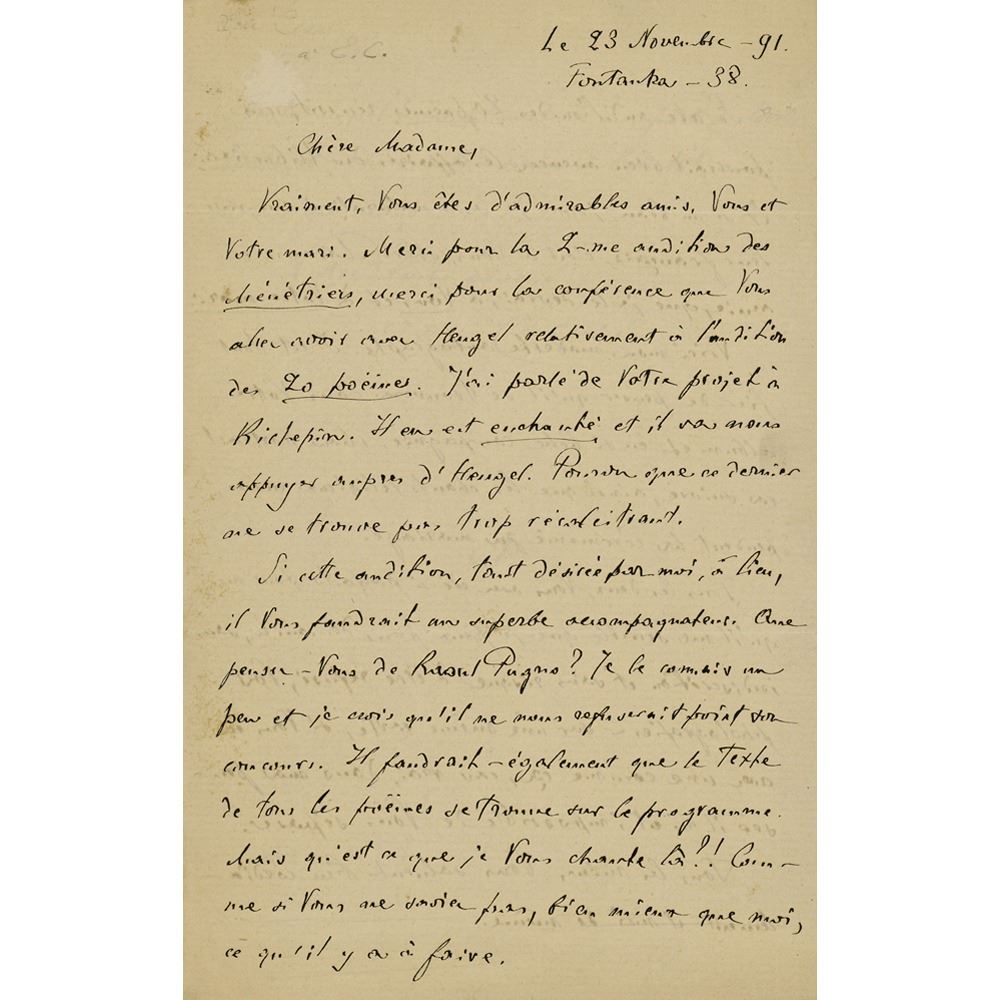 à C. C.
Le 23 Novembre - 91.
Fontanka - 38.
Chère Madame,
Vraiment, Vous êtes d'admirables amis, Vous et
Votre mari. Merci pour la 2-me audition des
Ménétriers, merci pour la conférence que Vous
allez avoir avec Heugel relativement à l'audition
des 20 poèmes. J'ai parlé de Votre projet à
Richepin. Il en est enchanté et il va nous
appuyer auprès d'Heugel. Pourvu que ce dernier
ne se trouve pas trop récalcitrant.
Si cette audition, tant désirée par moi, a lieu,
il Vous faudrait un superbe accompagnateur. Que
pensez-Vous de Raoul Pugno? Je le connais un
peu et je crois qu'il ne nous refuserait point son
concours. Il faudrait-également que le texte
de tous les poèmes se trouve sur le programme.
Mais qu'est ce que je Vous chante là?! Com-
me si Vous ne saviez pas, bien mieux que moi,
ce qu'il y a à faire.